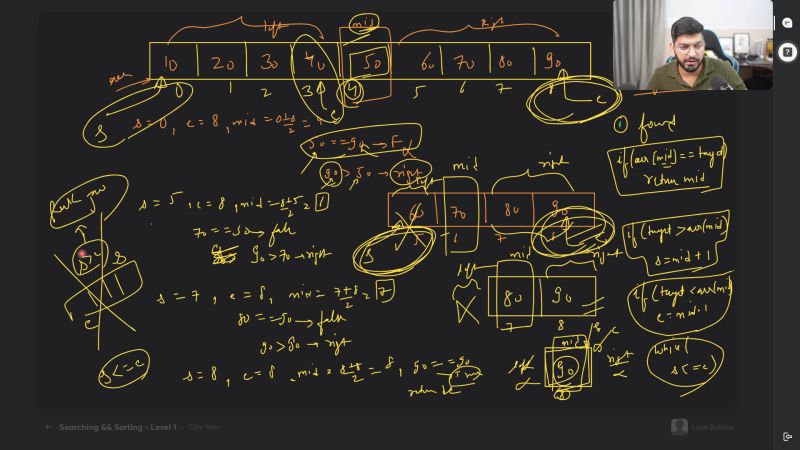 left mid right
10 20 30 40 50 60 70 80 90
arr 0 1 2 3 4 5 6 7 8
s e e
s=0, e=8, mid=0+8/2=4
50==90→F
90>50→right
① found
if(arr[mid]==target)
return mid
mid right
s=5, e=8, mid=8+5/2=
60 70 80 90
5 6 7 8
s
70==90→false
90>70→right
if(target>arr[mid])
s=mid+1
left mid right
80 90
7 8
s=7, e=8, mid=7+8/2=7
80==90→false
90>80→right
if(target<arr[mid])
e=mid-1
s
e
s<=e
s=8, e=8, mid=8+8/2=8, 90==90
True
return
left mid right
90
8
while(
s<=e)
Searching && Sorting - Level 1 - 02hr 16m
Love Babbar